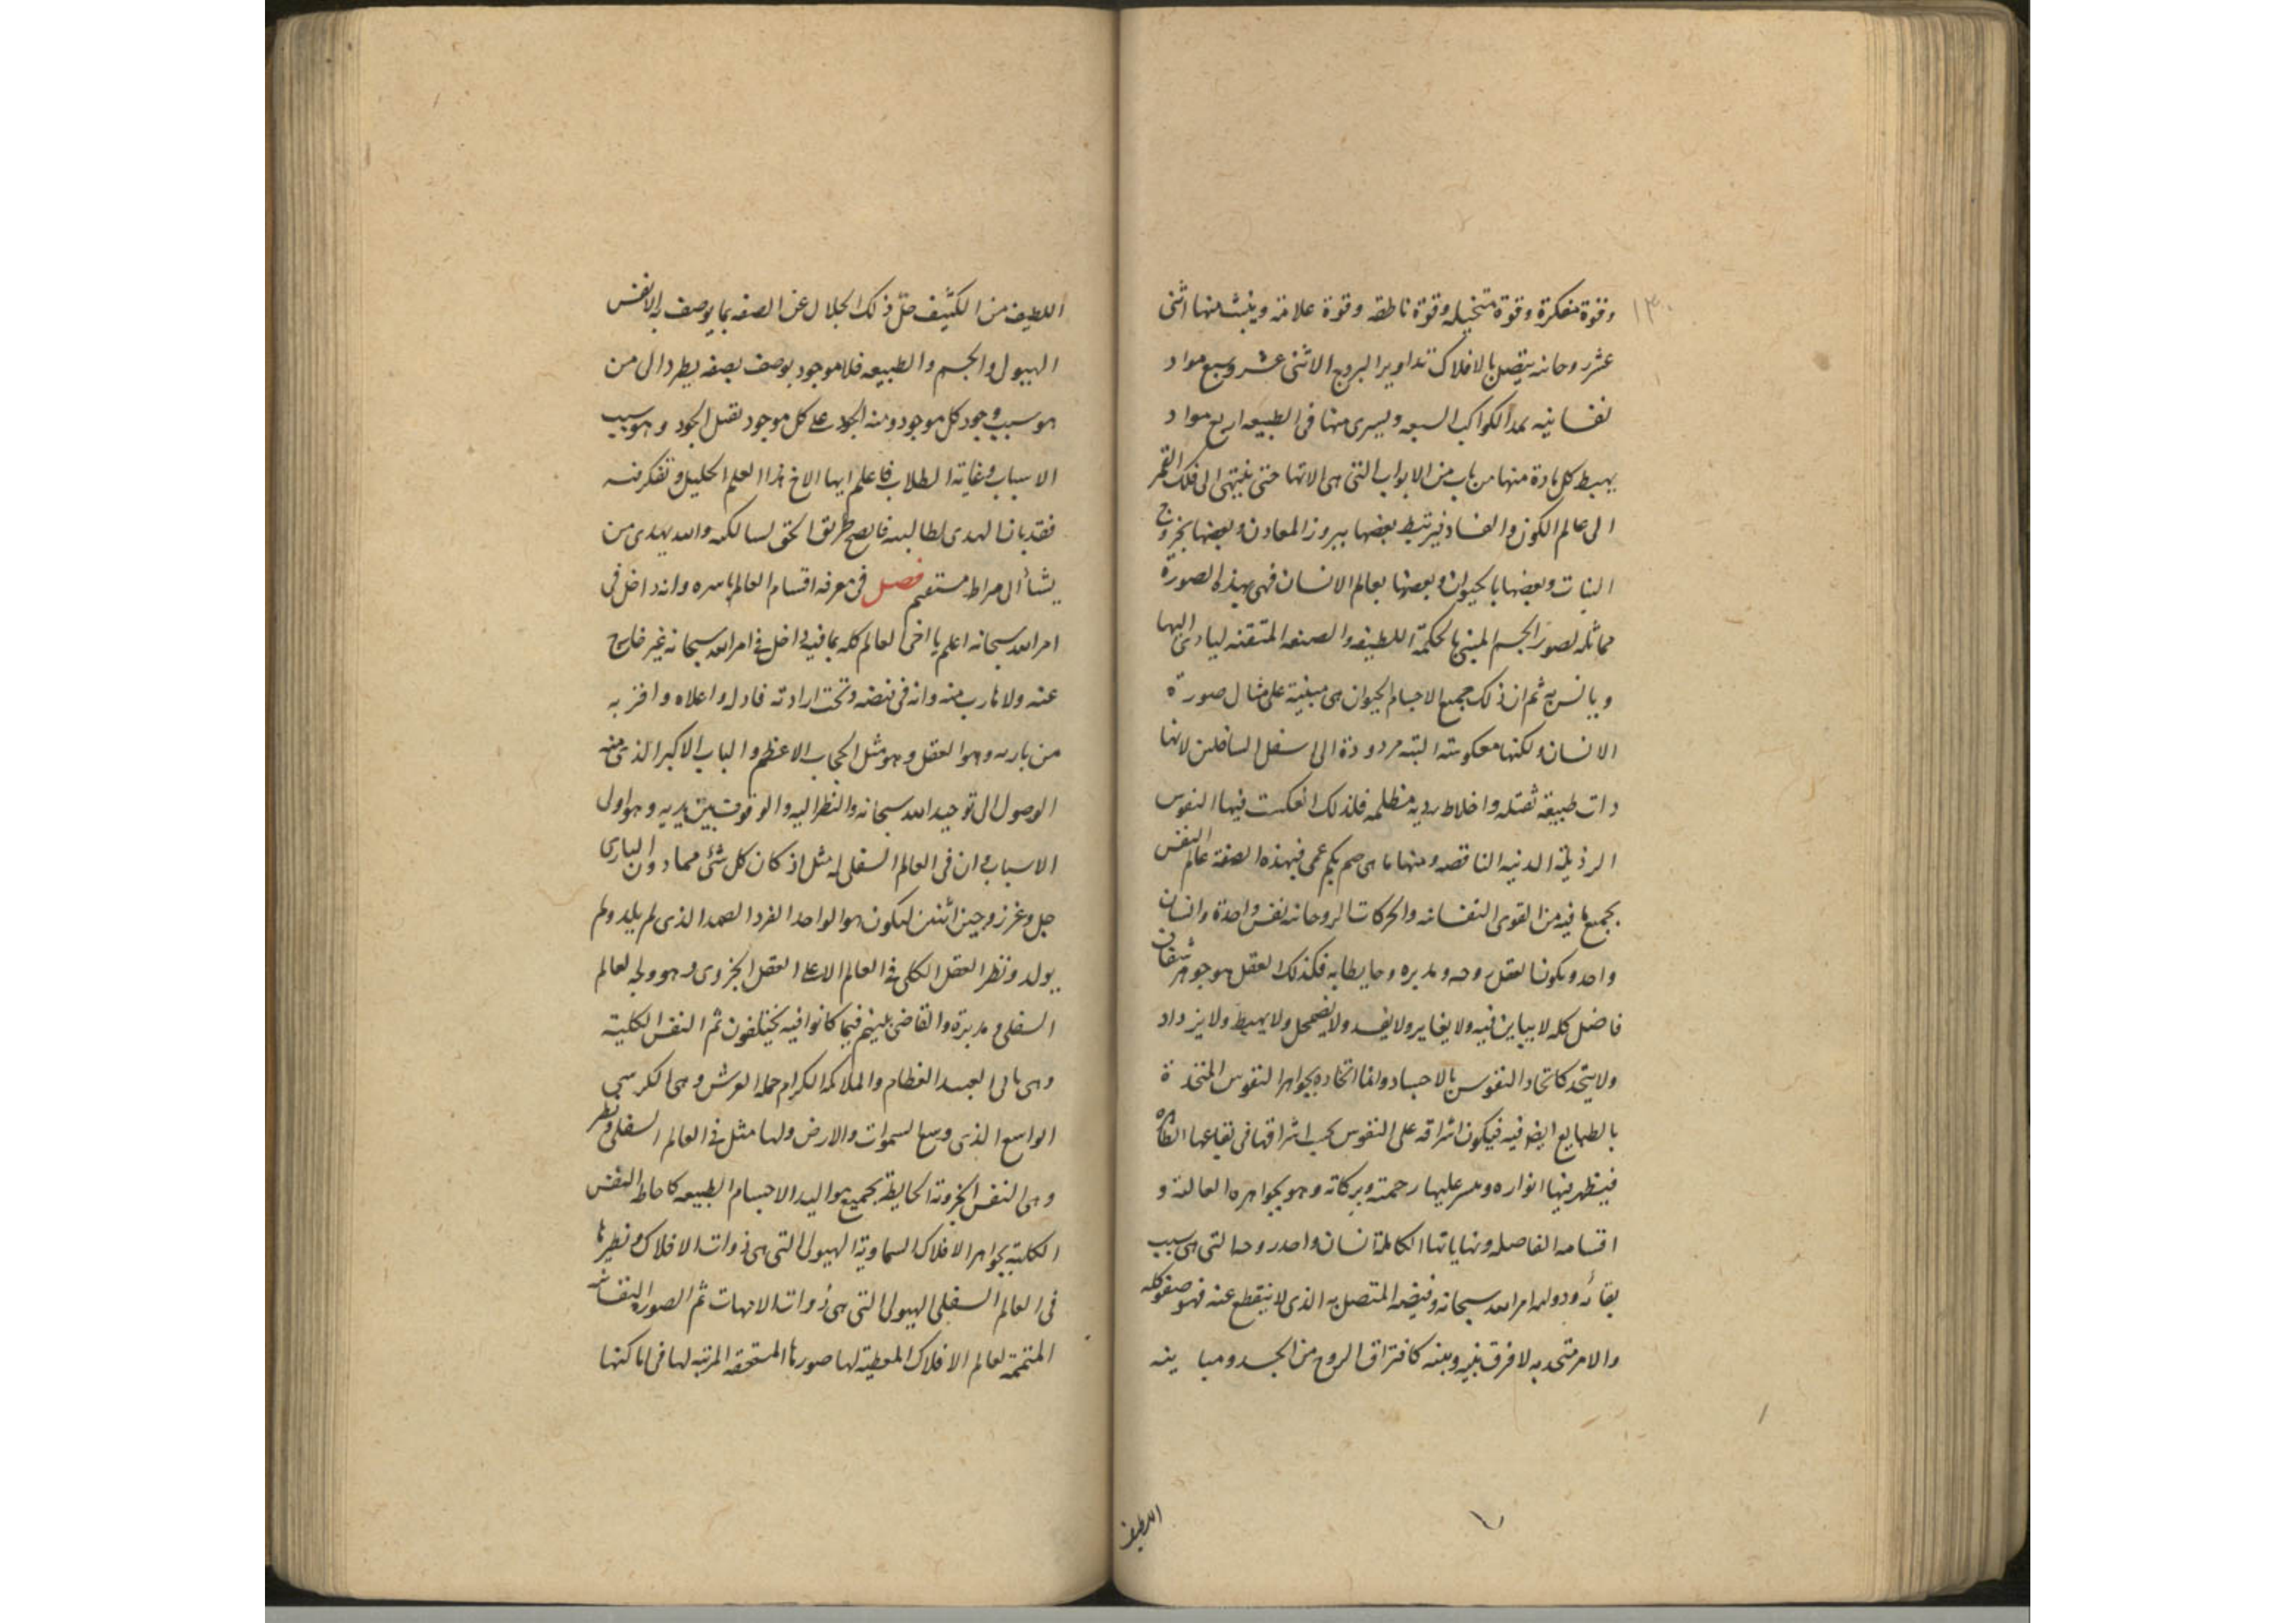 ١٣٠
وقوة مفكرة وقوة متخيله وقوة ناطقه وقوة علامة وينبث منها اثنى
عشر روحانيه يتصل بالافلاك تداوير البروج الاثنى عشر وسبع مواد
نفسانيه بمد الكواكب السبعه ويسرى منها فى الطبيعه اربع مواد
يهبط كل مادة منها من باب من الابواب التى هى الاتها حتى ينتهى الى فلك القمر
الى عالم الكون والفساد فيرتبط بعضها ببروز المعادن وبعضها بخروج
النبات وبعضها بالحيوان وبعضها بعالم الانسان فهى بهذه الصورة
مماثله لصور الجسم المبنى بالحكمة اللطيفه والصنعه المتقنه ليادى اليها
ويانس به ثم ان ذلك جميع الاجسام الحيوان هى مبنية على مثال صورة
الانسان ولكنها معكوسة البته مردودة الى اسفل السافلين لانها
ذات طبيعة ثقيله واخلاط رديه مظلمه فلذلك انعكست فيها النفوس
الرذيلة الدنيه الناقصه ومنها ما هى صم بكم عمى فبهذه الصفة عالم النفس
بجميع ما فيه من القوى النفسانيه والحركات الروحانيه نفس واحدة وانسان
واحد ويكون العقل روحه ومدبره وحايطا به فكذلك العقل هو جوهر شفاف
فاضل كله لا يباين فيه ولا يغاير ولا يفسد ولا يضمحل ولا يهبط ولا يزداد
ولا يتحد كاتحاد النفوس بالاجساد وانما اتحاده بجواهر النفوس المتحدة
بالطبايع ايضا فيه فيكون اشراقه على النفوس بحسب اشراقها فى بقاعها الطاهرة
فيظهر فيها انواره و عليها رحمته وبركاته وهو بجواهره العالية و
اقسامه الفاضله ونهاياتها الكاملة انسان واحد روحه التى هى سبب
بقائه ودوامه امر الله سبحانه وفيضه المتصل به الذى لا ينقطع عنه فهو صفو كله
والامر متحد به لا فرق بينه وبينه كافتراق الروح من الجسد ومباينه
اللطيف
اللطيف من الكثيف جل ذلك الجلال عن الصفه بما يوصف به الانفس
الهيولى والجسم والطبيعه فلا موجود يوصف بصفه يطرد الى من
هو سبب وجود كل موجود ومنه الجود على كل موجود تقبل الجود وهو سبب
الاسباب وغاية الطلاب فاعلم ايها الاخ هذا العلم الجليل وتفكر فيه
فقد بان الهدى لطالبيه فاتضح طريق الحق لسالكيه والله يهدى من
يشأ الى صراط مستقيم فصل فى معرفة اقسام العالم باسره وانه داخل فى
امر الله سبحانه اعلم يا اخى العالم كله بما فيه داخل فى امر الله سبحانه غير خارج
عنه ولا هارب منه وانه فى قبضه وتحت ارادته فاوله واعلاه واقربه
من باريه هو العقل وهو مثل الحجاب الاعظم والباب الاكبر الذى منه
الوصول الى توحيد الله سبحانه والنظر اليه والوقوف بين يديه وهو اول
الاسباب وان فى العالم السفلى له مثل اذ كان كل شئ مما دون البارى
جل وعز زوجين اثنين ليكون هو الواحد الفرد الصمد الذى لم يلد ولم
يولد ونظر العقل الكلى فى العالم الاعلى العقل الجزوى وهو وجه لعالم
السفلى ومدبره والقاضى بينهم فيما كانوا فيه يختلفون ثم النفس الكلية
وهى والملائكه الكرام حمله العرش وهى الكرسى
الواسع الذى وسع السموات والارض ولها مثل فى العالم السفلى ونظير
وهى النفس الجزوية الحايطة بجميع مواليد الاجسام الطبيعه كاحاطه النفس
الكلية بجواهر الافلاك السماوية الهيولى التى هى ذوات الافلاك ونظيرها
فى العالم السفلى الهيولى التى هى ذوات الامهات ثم الصور النفسانيه
المتممة لعالم الافلاك المعطية لها صورها المستحقه المرتبه لها فى اماكنها